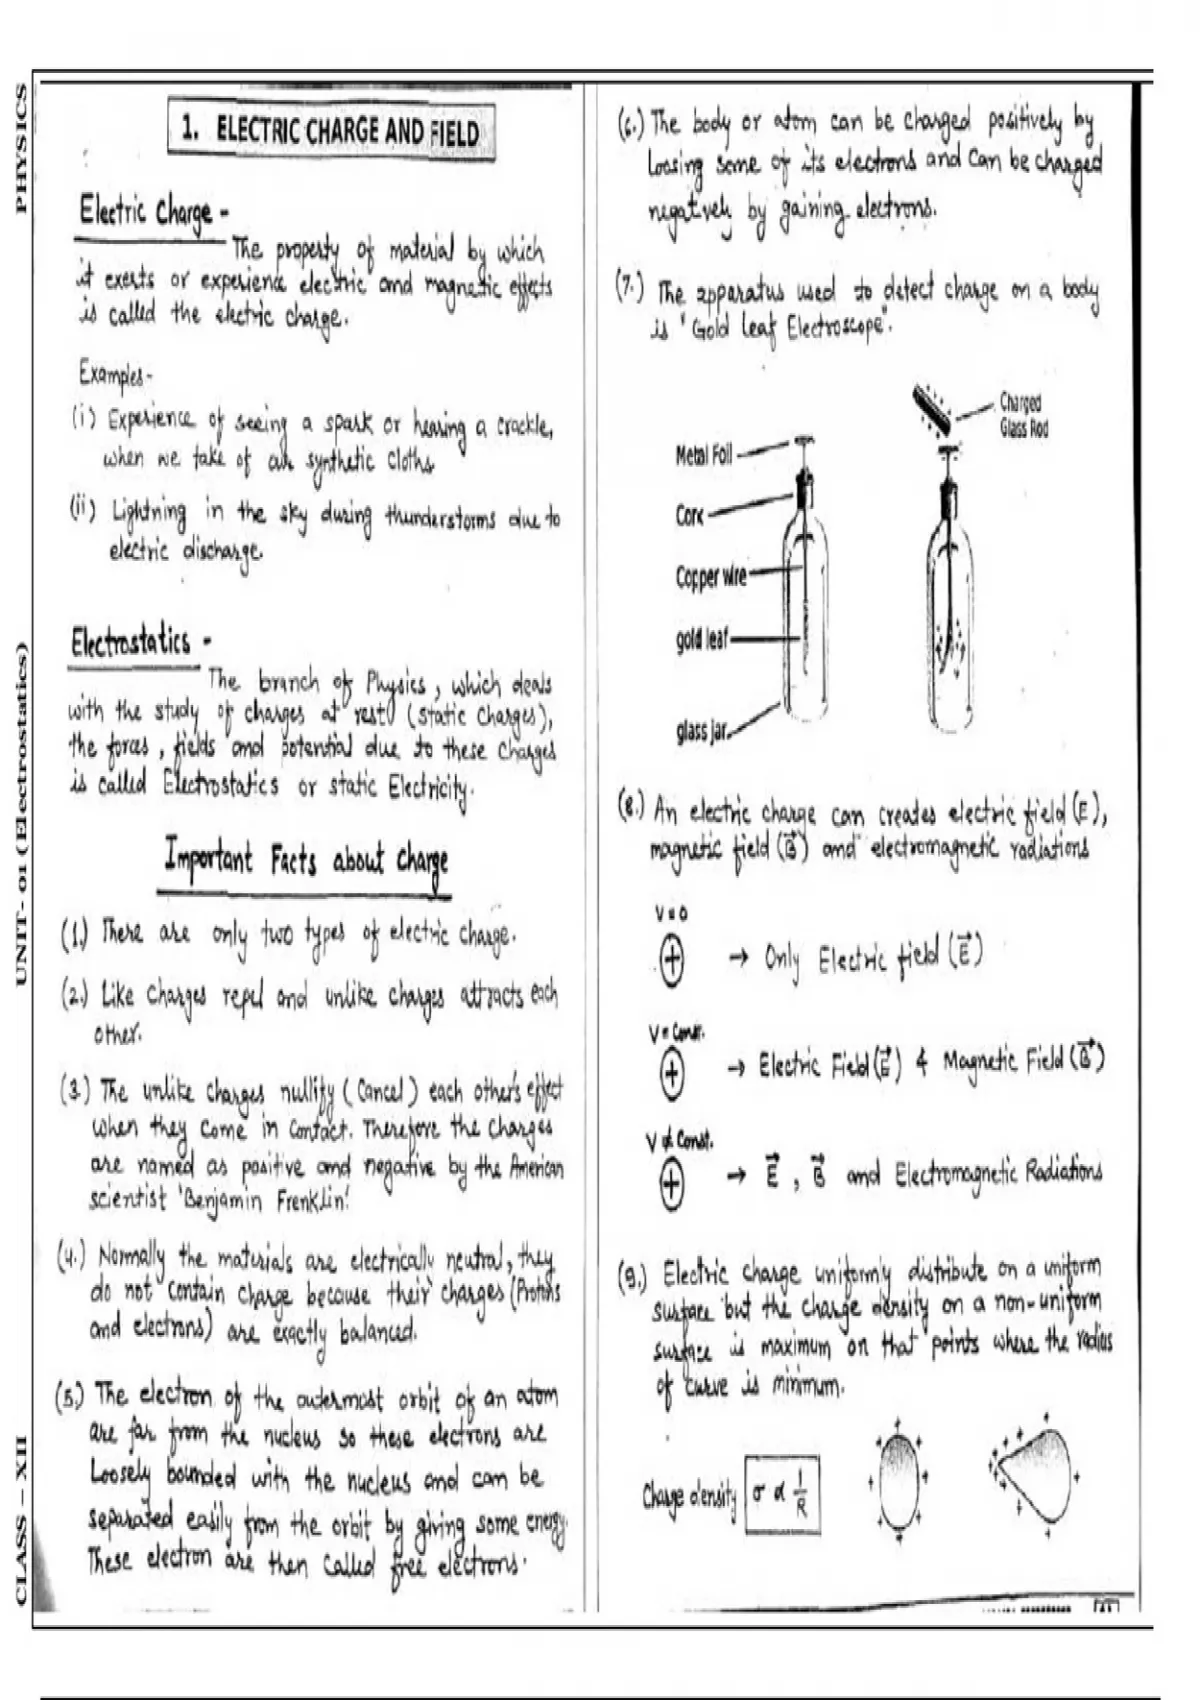 PHYSICS
UNIT- 01 (Electrostatics)
CLASS – XII
1. ELECTRIC CHARGE AND FIELD
Electric Charge -
The property of material by which
it exerts or experience electric and magnetic effects
is called the electric charge.
Examples-
(i) Experience of seeing a spark or hearing a crackle,
when we take of our synthetic cloths
(ii) Lightning in the sky during thunderstorms due to
electric discharge.
Electrostatics -
The branch of Physics, which deals
with the study of charges at rest (static Charges),
the forces, fields and potential due to these Charges
is called Electrostatics or static Electricity.
Important Facts about charge
(1.) There are only two types of electric charge.
(2.) Like Charges repel and unlike charges attracts each
other.
(3.) The unlike charges nullify (Cancel) each other's effect
when they come in contact. Therefore the charges
are named as positive and negative by the American
scientist 'Benjamin Frenklin'
(4.) Normally the materials are electrically neutral, they
do not contain charge because their charges (Protons
and electrons) are exactly balanced.
(5.) The electron of the outermost orbit of an atom
are far from the nucleus so these electrons are
Loosely bounded with the nucleus and can be
separated easily from the orbit by giving some energy.
These electron are then called free electrons.
(6.) The body or atom can be charged positively by
Loosing some of its electrons and Can be charged
negatively by gaining electrons.
(7.) The apparatus used to detect charge on a body
is "Gold Leaf Electroscope".
Charged
Glass Rod
Metal Foil
Cork
Copper wire
gold leaf
glass jar
(8.) An electric charge can creates electric field (E),
magnetic field (B⃗) and electromagnetic radiations
V = 0
+ → Only Electric field (E⃗)
V = Const.
+ → Electric Field (E⃗) & Magnetic Field (B⃗)
V ≠ Const.
+ → E⃗, B⃗ and Electromagnetic Radiations
(9.) Electric charge uniformly distribute on a uniform
surface but the charge density on a non-uniform
surface is maximum on that points where the radius
of curve is minimum.
Charge density σ ∝ 1/R